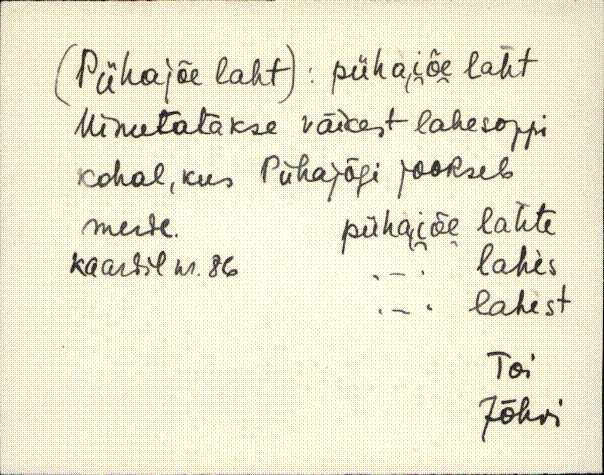 (Pühajõe laht): pühai̯õe̯ laht
Nimetatakse väikest lahesoppi
kohal, kus Pühajõgi jookseb
merde. pühai̯õe̯ lahte
kaardil nr. 86 .–. lahès
.–. lahèst
Toi
Jõhvi